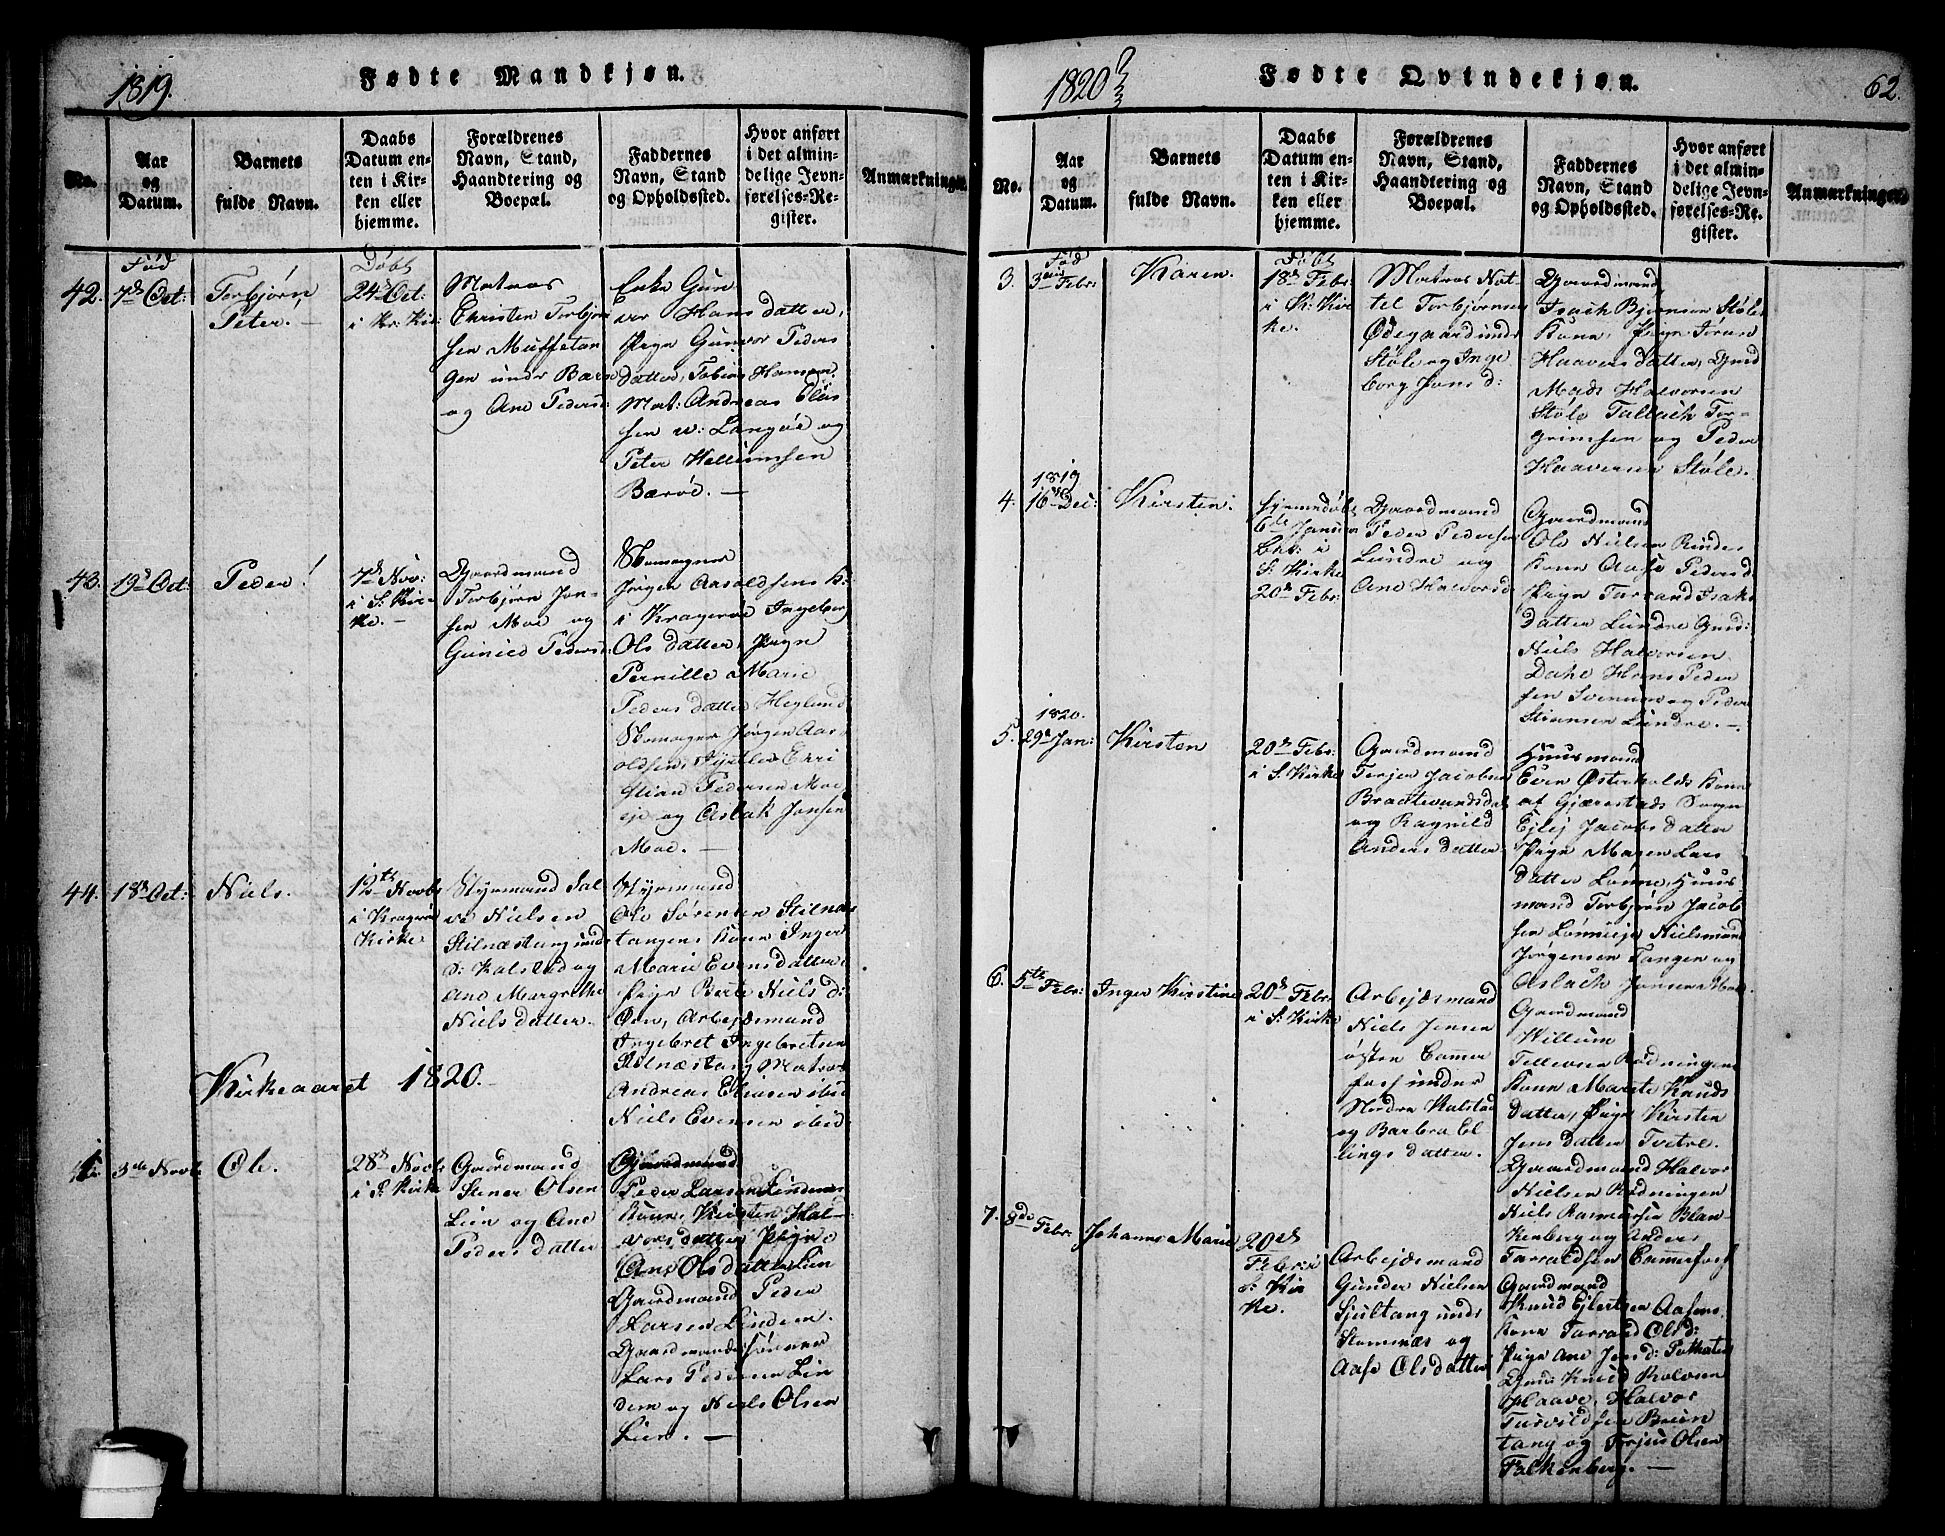 1819.
Fødte Mandkjøn.
No.
Aar
og
Datum.
Barnets
fulde Navn.
Daabs
Datum en-
ten i Kir-
ken eller
hjemme.
Forældrenes
Navn, Stand,
Haandtering og
Boepæl.
Faddernes
Navn, Stand
og Opholdssted.
Hvor anført
i det almin-
delige Jevn-
førelses-Re-
gister.
Anmærkninger.
42.
Fød
7de Oct:
Torbjørn
Peter.
Døbt
24de Oct:
i Kr: Kir:
Matros
Christen Torbjørn
sen Muffetan
gen under Barøe
og Ane Peders:
Enke Gun
vor Hans datter,
Pige Gunvor Peders
datter, Tobias Hansen
Mat: Andreas Elias
sen v: Langøe og
Peter Hellumsen
Barøe. —
43.
19de Oct:
Peder!
7de Nov:
i S: Kir-
ke. —
Gaardmand
Torbjørn Jon-
sen Moe og
Gunild Peders:
Skomager
Jørgen Aasoldsens K:
i Kragerøe Ingeborg
Ols datter, Pige
Pernille Marie
Peders datter Heglund
Skomager Jørgen Aas-
oldsen, Chri
stian Pedersen Moe
eje og Aslak Jonsen
Moe. —
44.
18de Oct:
Niels.
12te Novb
i Kragerø
Kirke
Styrmand Sal
ve Nielsen
Stilnæstang und:
S: Kalstad og
Ane Margrethe
Niels datter.
Styrmand
Ole Sørensen Stilnæs
tangens Kone Inger
Marie Evensdatter
Pige Berte Niels d:
Øen, Arbejdsmand
Ingebret Ingebretsen
Stilnæstang Matros
Andreas Eliasen ibid
Niels Evensen ibid
Kirkeaaret 1820.
1.
3de Novb
Ole.
28de Novb
i S: Kirke
Gaardmand
Stener Olsen
Lien og Ane
Peders datter
Gaardmand
Peder Larsen Lindems
Kone, Kirsten Hal-
vors datter Pige
Ane Ols datter Lien
Gaardmand Peder
Larsen Lindem.
Gaardmands sønner
Lars Pedersen Lin
dem og Niels Olsen
Lien. —
1820
Fødte Qvindekjøn.
62.
No.
Aar
og
Datum.
Barnets
fulde Navn.
Daabs
Datum en-
ten i Kir-
ken eller
hjemme.
Forældrenes
Navn, Stand,
Haandtering og
Boepæl.
Faddernes
Navn, Stand
og Opholdssted.
Hvor anført
i det almin-
delige Jevn-
førelses-Re-
gister.
Anmærkninger.
3.
Fød
3die Febr:
Karen.
Døbt
18de Febr:
i K: Kir
ke.
Matros Net-
tel Torbjørnsen
Ødegaard under
Støle og Inge
borg Jons d:
Gaardmand
Isach Bjørnsen Støles
Kone, Pige Joran
Haavers datter, Gmd
Mads Halvorsen
Støle Tallach Tor-
grimsen og Peder
Haaversen Støle.
4.
1819
16de Dec:
Kirsten.
hjemmedøbt
6de Januar
Chr: i
S: Kirke
20de Febr:
Gaardmand
Peder Pedersen
Lundre og
Ane Halvorsd
Gaardmand
Ole Nielsen Rindes
Kone Aase Peders d:
Pige Tarrand Isaks
datter Lundre Gmd:
Niels Halvorsen
Dahl Hans Peder
sen og Peder
Stiansen Lundre. —
5.
1820.
29de Jan:
Kirsten
20de Febr:
i S: Kirke
Gaardmand
Terjer Jacobsen
Braatevandsdal
og Ragnild
Anders datter
Huusmand
Even Østerholds Kone
af Gjærestads Sogn
Ejlej Jacobs datter
Pige Maren Lars
datter Lønne, Huus-
mand Torbjørn Jacob
sen Lønneeje
Jørgensen Tangen og
Aslach Jonsen Moe
6.
5te Febr:
Inger Kirstine
20de Febr:
i S: Kirke
Arbejdsmand
Niels Jensen
østen Cammer
foss under
Nordre Kalstad
og Barbra El
lings datter.
Gaardmand
Willum
Tellevsen Rødningens
Kone Marete Knuds
datter, Pige Kirsten
Jens datter Tvetre.
Gaardmand Halvor
Nielsen Rødningen
Niels Rasmussen Blan-
kenberg og Anders
Tarraldsen Cammerfoss
7.
8de Febr:
Johanne Marie
20de
Febr: i
S: Kir
ke.
Arbejdsmand
Gunder Nielsen
Sjultang under
Stomnæs og
Aase Olsdatter
Gaardmand
Knud Ejlertsen Aasens
Kone Tarrand Olsd:
Pige Ane Jens d:
Gmd: Knud Rolvsen
Haave, Halvor
Tarvildsen Breien
tang og Terjus Olsen
Falkenberg. —